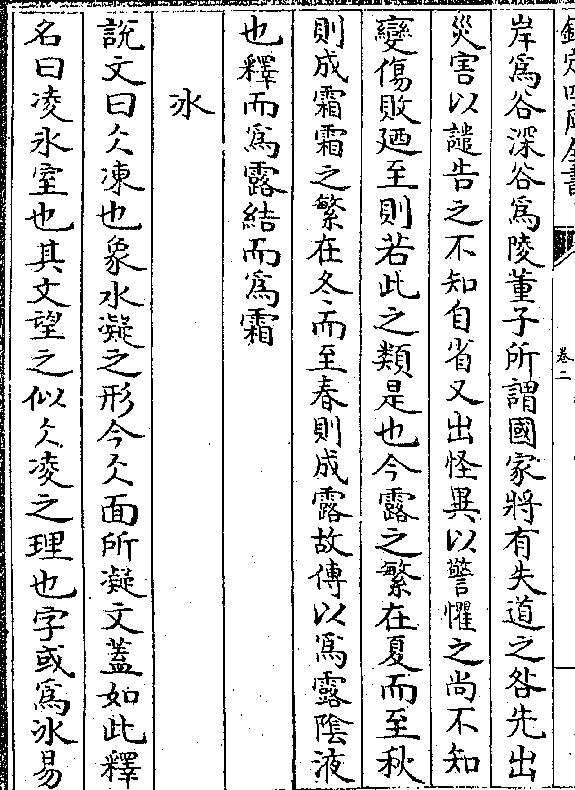 欽定四庫全書
卷二
岸爲谷深谷爲陵董子所謂國家將有失道之咎先出
災害以譴告之不知自省又出怪異以警懼之尚不知
變傷敗廼至則若此之類是也今露之繁在夏而至秋
則成霜霜之繁在冬而至春則成露故傳以爲露隂液
也釋而爲露結而爲霜
冰
說文曰仌凍也象水凝之形今仌面所凝文蓋如此釋
名曰凌氷室也其文望之似仌凌之理也字或爲冰易